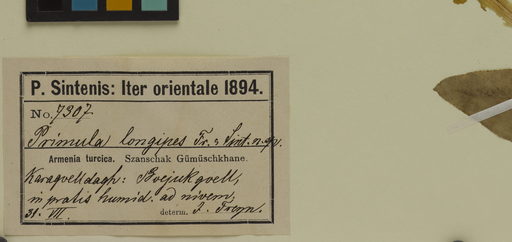 P. Sintenis: Iter orientale 1894.
No. 7307.
Primula longipes Fr. & Sint. n. sp.
Armenia turcica. Szanschak Gümüschkhane.
Karagoelldagh: Boejukgoell,
in pratis humid. ad nivem,
31. VII. determ. J. Freyn.